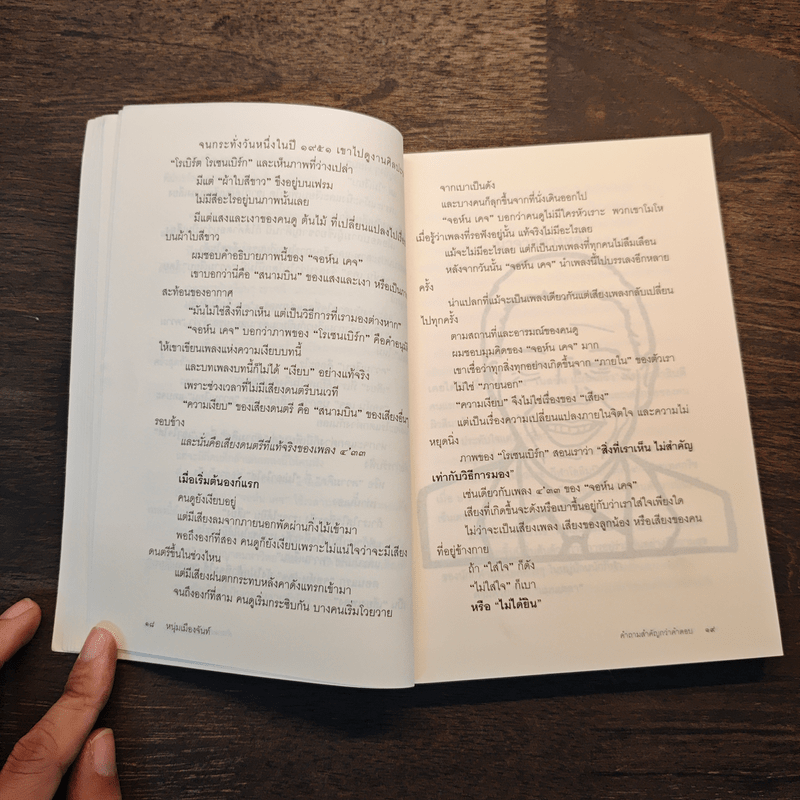 จนกระทั่งวันหนึ่งในปี ๑๙๕๑ เขาไปดูงานศิลปะ
"โรเบิร์ต โรเซนเบิร์ก" และเห็นภาพที่ว่างเปล่า
มีแต่ "ผ้าใบสีขาว" ขึงอยู่บนเฟรม
ไม่มีสีอะไรอยู่บนภาพนั้นเลย
มีแต่แสงและเงาของคนดู ต้นไม้ ที่เปลี่ยนแปลงไป
บนผ้าใบสีขาว
ผมชอบคำอธิบายภาพนี้ของ "จอห์น เคจ"
เขาบอกว่านี่คือ "สนามบิน" ของแสงและเงา หรือเป็น
สะท้อนของอากาศ
"มันไม่ใช่สิ่งที่เราเห็น แต่เป็นวิธีการที่เรามองต่างหาก"
"จอห์น เคจ" บอกว่าภาพของ "โรเซนเบิร์ก" คือคำ
ให้เขาเขียนเพลงแห่งความเงียบบทนี้
และบทเพลงบทนี้ก็ไม่ได้ "เงียบ" อย่างแท้จริง
เพราะช่วงเวลาที่ไม่มีเสียงดนตรีบนเวที
"ความเงียบ" ของเสียงดนตรี คือ "สนามบิน" ของเสียงอื่นๆ
รอบข้าง
และนั่นคือเสียงดนตรีที่แท้จริงของเพลง ๔'๓๓
เมื่อเริ่มต้นองก์แรก
คนดูยังเงียบอยู่
แต่มีเสียงลมจากภายนอกพัดผ่านกิ่งไม้เข้ามา
พอถึงองก์ที่สอง คนดูก็ยังเงียบเพราะไม่แน่ใจว่าจะมีเสียง
ดนตรีขึ้นในช่วงไหน
แต่มีเสียงฝนตกกระทบหลังคาดังแทรกเข้ามา
จนถึงองก์ที่สาม คนดูเริ่มกระซิบกัน บางคนเริ่มโวยวาย
๑๘ หนุ่มเมืองจันท์
จากเบาเป็นดัง
และบางคนก็ลุกขึ้นจากที่นั่งเดินออกไป
"จอห์น เคจ" บอกว่าคนดูไม่มีใครหัวเราะ พวกเขาโมโห
เมื่อรู้ว่าเพลงที่รอฟังอยู่นั้น แท้จริงไม่มีอะไรเลย
แม้จะไม่มีอะไรเลย แต่ก็เป็นบทเพลงที่ทุกคนไม่ลืมเลือน
หลังจากวันนั้น "จอห์น เคจ" นำเพลงนี้ไปบรรเลงอีกหลาย
ครั้ง
น่าแปลกที่แม้จะเป็นเพลงเดียวกันแต่เสียงเพลงกลับเปลี่ยน
ไปทุกครั้ง
ตามสถานที่และอารมณ์ของคนดู
ผมชอบมุมคิดของ "จอห์น เคจ" มาก
เขาเชื่อว่าทุกสิ่งทุกอย่างเกิดขึ้นจาก "ภายใน" ของตัวเรา
ไม่ใช่ "ภายนอก"
"ความเงียบ" จึงไม่ใช่เรื่องของ "เสียง"
แต่เป็นเรื่องความเปลี่ยนแปลงภายในจิตใจ และความไม่
หยุดนิ่ง
ภาพของ "โรเซนเบิร์ก" สอนเราว่า "สิ่งที่เราเห็น ไม่สำคัญ
เท่ากับวิธีการมอง"
เช่นเดียวกับเพลง ๔'๓๓ ของ "จอห์น เคจ"
เสียงที่เกิดขึ้นจะดังหรือเบาขึ้นอยู่กับว่าเราใส่ใจเพียงใด
ไม่ว่าจะเป็นเสียงเพลง เสียงของลูกน้อง หรือเสียงของคน
ที่อยู่ข้างกาย
ถ้า "ใส่ใจ" ก็ดัง
"ไม่ใส่ใจ" ก็เบา
หรือ "ไม่ได้ยิน"
คำถามสำคัญกว่าคำตอบ ๑๙